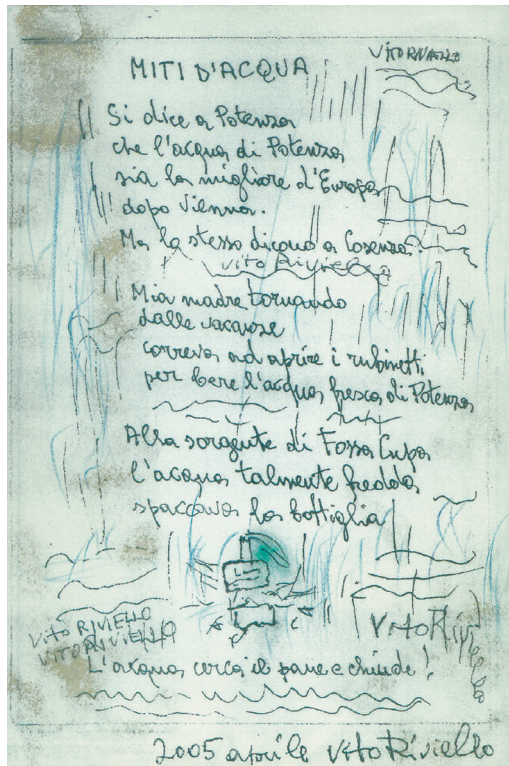 MITI D'ACQUA
VITO RIVIELLO
Si dice a Potenza
che l'acqua di Potenza
sia la migliore d'Europa
dopo Vienna.
Ma lo stesso dicono a Cosenza.
Vito Riviello
Mia madre tornando
dalle vacanze
correva ad aprire i rubinetti
per bere l'acqua fresca di Potenza
Alla sorgente di Fossa Cupa
l'acqua talmente fredda
spaccava la bottiglia
VITO RIVIELLO
VITO RIVIELLO
Vito Riviello
L'acqua cerca il pane e chiude!
2005 aprile Vito Riviello